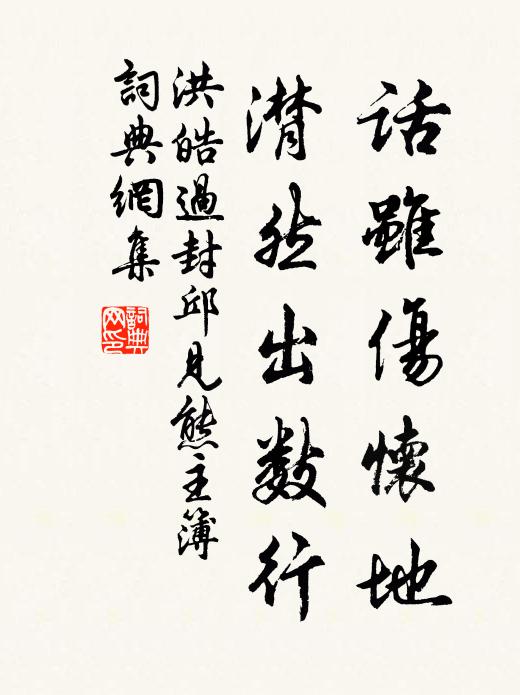 话雖傷懷地
潸然出数行
洪皓過封邱見熊主簿
詞典網集
詞典网印